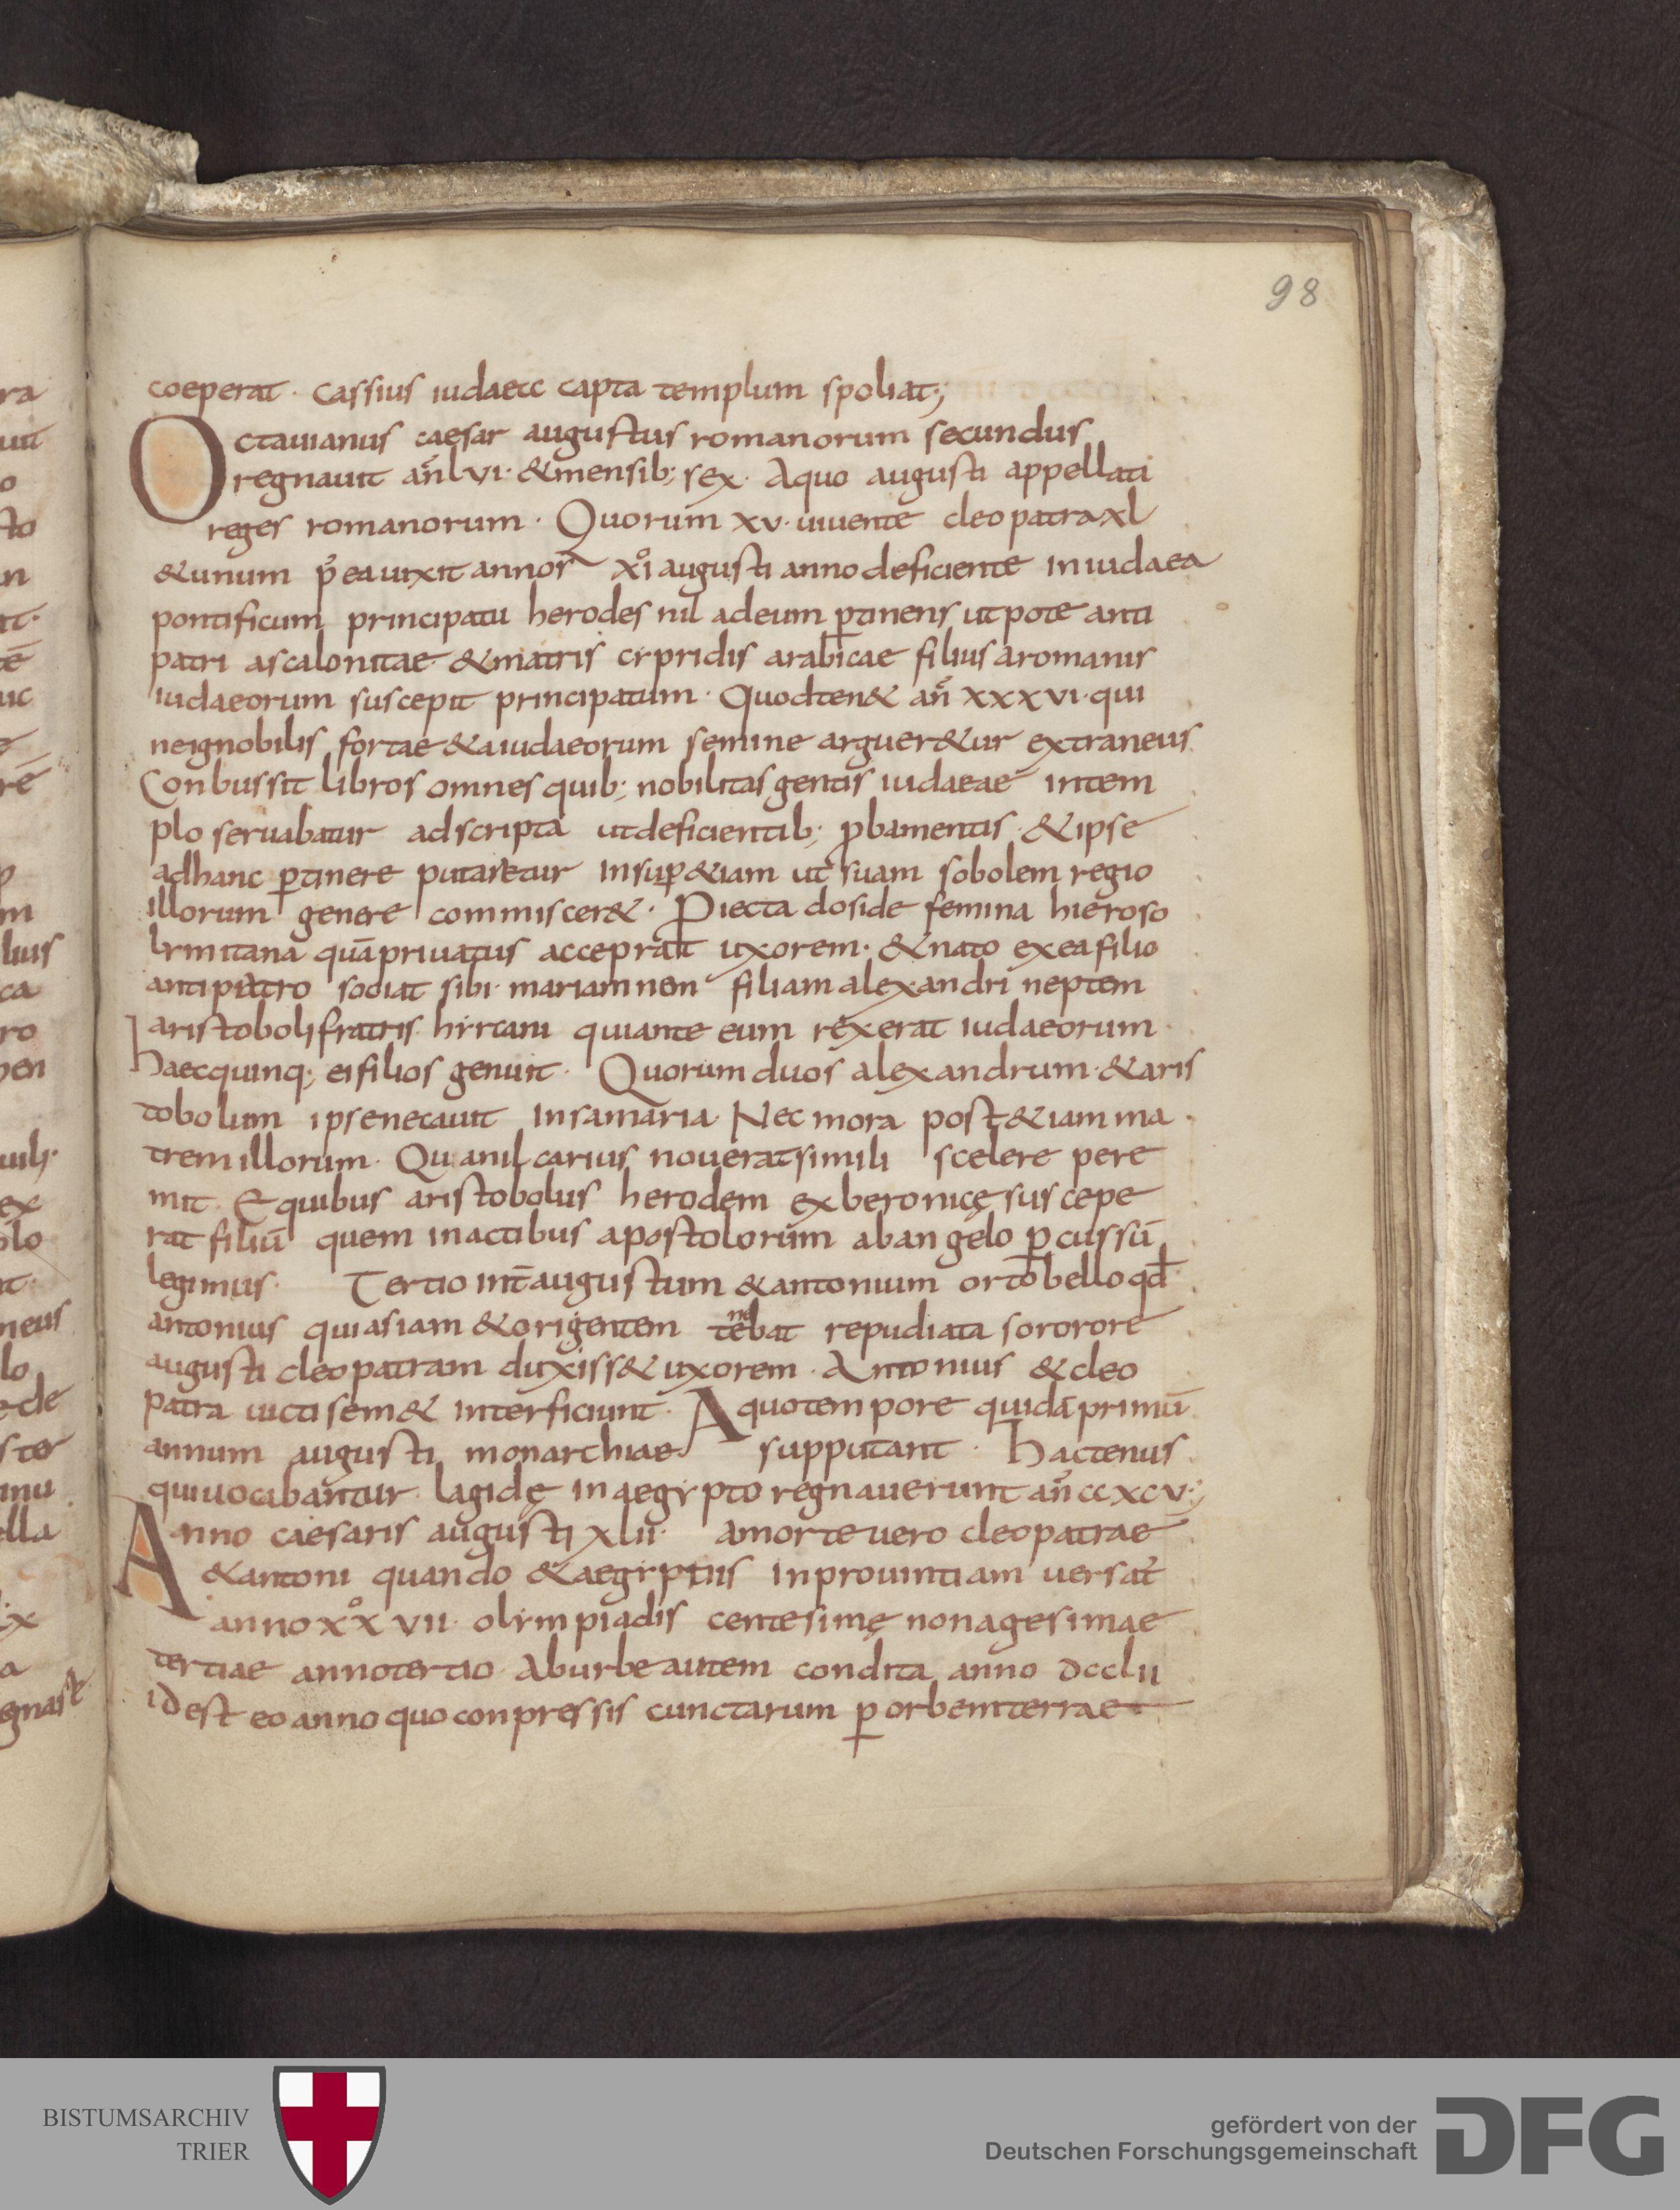 98
coeperat · Cassius iudaecc capta templum spoliat;
Octauianus caesar augustus romanorum secundus
regnauit añ lvi · & mensib; sex · Aquo augusti appellati
reges romanorum · Quorum xv · uiuente cleopatra xl
& unum p̃ ea uixit annos xi̊ augusti anno deficiente in iudaea
pontificum principatu herodes nil adeum ꝑtinens utpote anti
patri ascalonitae & matris cypridis arabicae filius aromanis
iudaeorum suscepit principatum · Quod ten& añ xxxvi · qui
neignobilis fortae & aiudaeorum semine arguer&ur extraneus
Conbussit libros omnes quib; nobilitas gentis iudaeae intem
plo seruabatur adscripta utdeficientib; ꝓbamentis · & ipse
adhanc ꝑtinere putaretur Insuꝑ &iam ut suam sobolem regio
illorum genere commiscer& · Piecta doside femina hieroso
lymitana quā priuatus acceprat uxorem · & nato exea filio
antipatro sociat sibi mariamnen filiam alexandri neptem
aristoboli fratris hyrcani quiante eum rexerat iudaeorum
haec quinq; ei filios genuit · Quorum duos alexandrum · & aris
tobolum ipsenecauit Insamaria · Nec mora post &iam ma
trem illorum · Qua nil carius nouerat simili scelere pere
mit · Equibus aristobolus herodem exberonicę suscepe
rat filiū quem inactibus apostolorum abangelo ꝑcussū
legimus · Tertio int̄ augustum & antonium orto bello qđ
antonius quiasiam & origentem tenebat repudiata sororore
augusti cleopatram duxiss& uxorem · Antonius & cleo
patra uicti sem& interficiunt · Aquo tempore quidā primū
annum augusti monarchiae supputant · Hactenus
quiuocabantur lagidę in aegypto regnauerunt añ ccxcv;
Anno caesaris augusti xlii · amorte uero cleopatrae
& antoni quando & aegyptus Inprouintiam uersat̃
anno xx̊vii · olympiadis centesimę nonagesimae
tertiae anno tertio Aburbe autem condita anno dcclii
idest eo anno quo conpressis cunctarum ꝑ orbem terrae
ra
uit
o
sto
an
at ·
tē
uc
e
rē
m
lius
ca
ro
pen
ex
olo
at ·
neus
lo
ede
ster
anu
ella
ix
a
egnaste
BISTUMSARCHIV
TRIER
gefördert von der
Deutschen Forschungsgemeinschaft
DFG